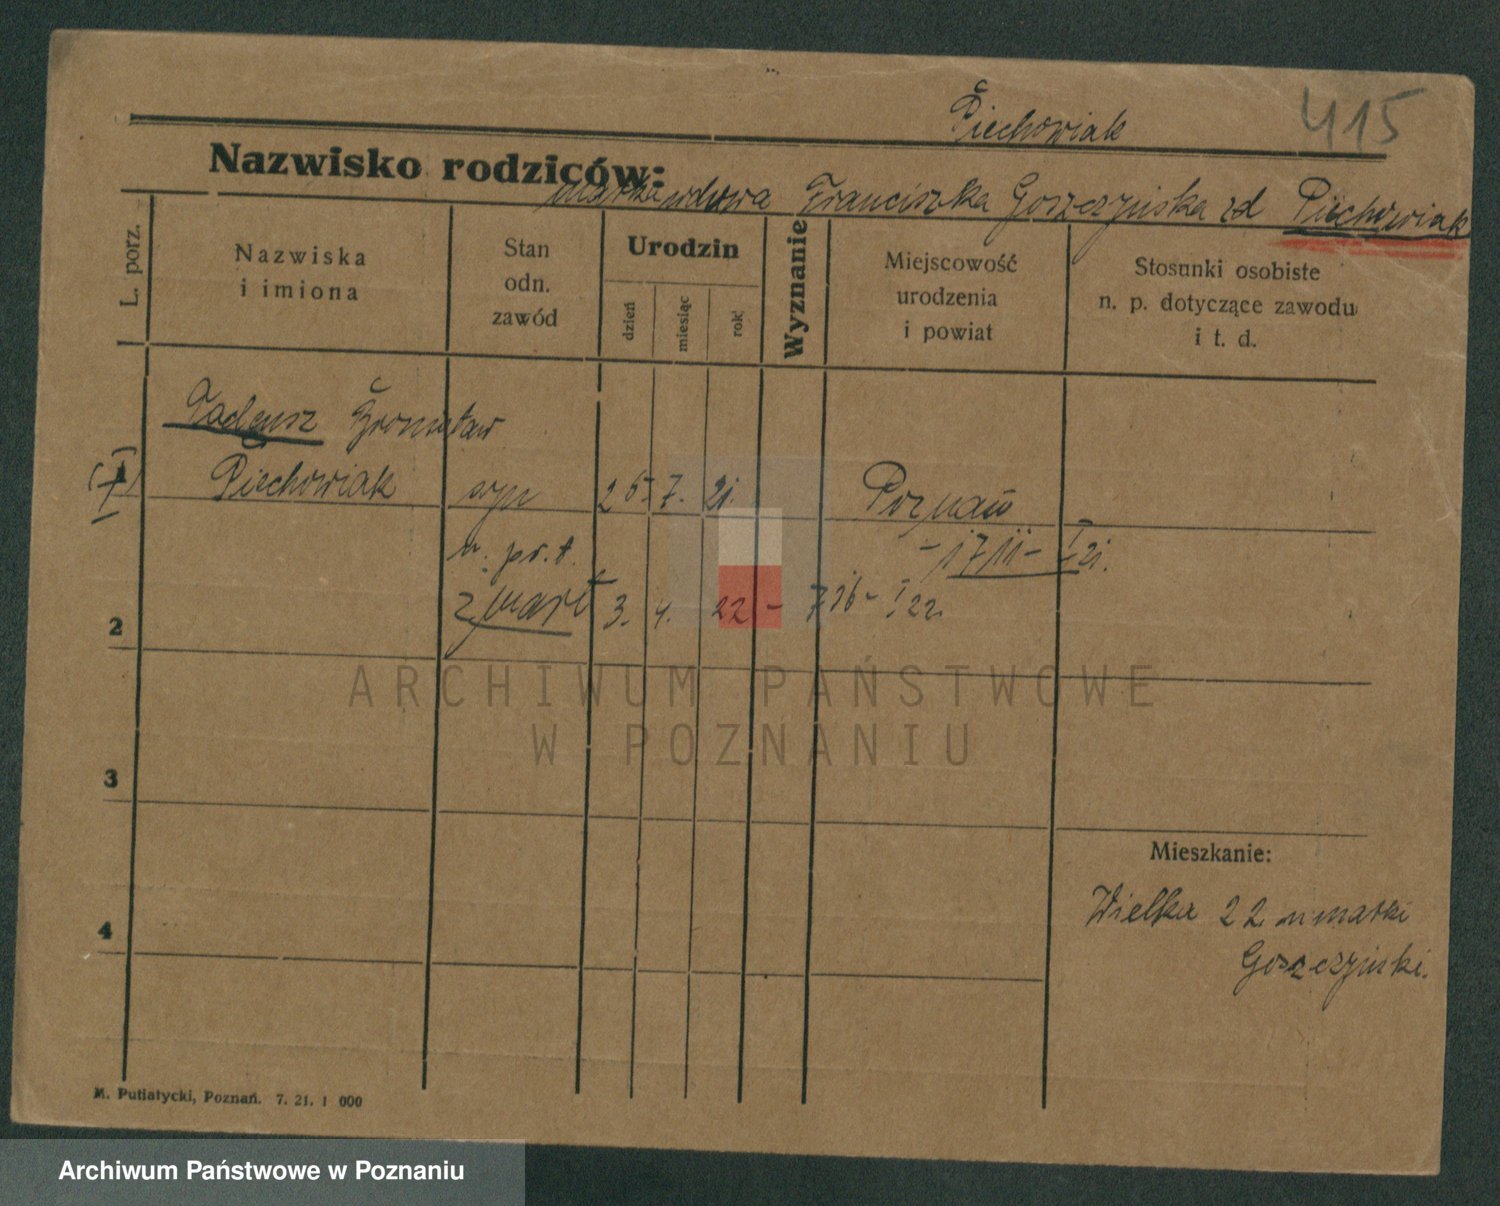 Piechowiak 415
Nazwisko rodziców:
matka wdowa Franciszka Goszczyńska zd Piechowiak
L. porz.
Nazwiska
i imiona
Stan
odn.
zawód
Urodzin
dzień
miesiąc
rok
Wyznanie
Miejscowość
urodzenia
i powiat
Stosunki osobiste
n. p. dotyczące zawodu
i t. d.
Tadeusz Bronisław
1 Piechowiak syn 25. 7. 21. Poznań
n. pr. t. - 1711 - I 21.
2 zmarł 3. 4. 22 - 726 - I 22.
3
4
Mieszkanie:
Wielka 22 u matki
Goszczyński.
M. Putiatycki, Poznań. 7. 21. 1 000
ARCHIWUM PAŃSTWOWE
W POZNANIU
Archiwum Państwowe w Poznaniu